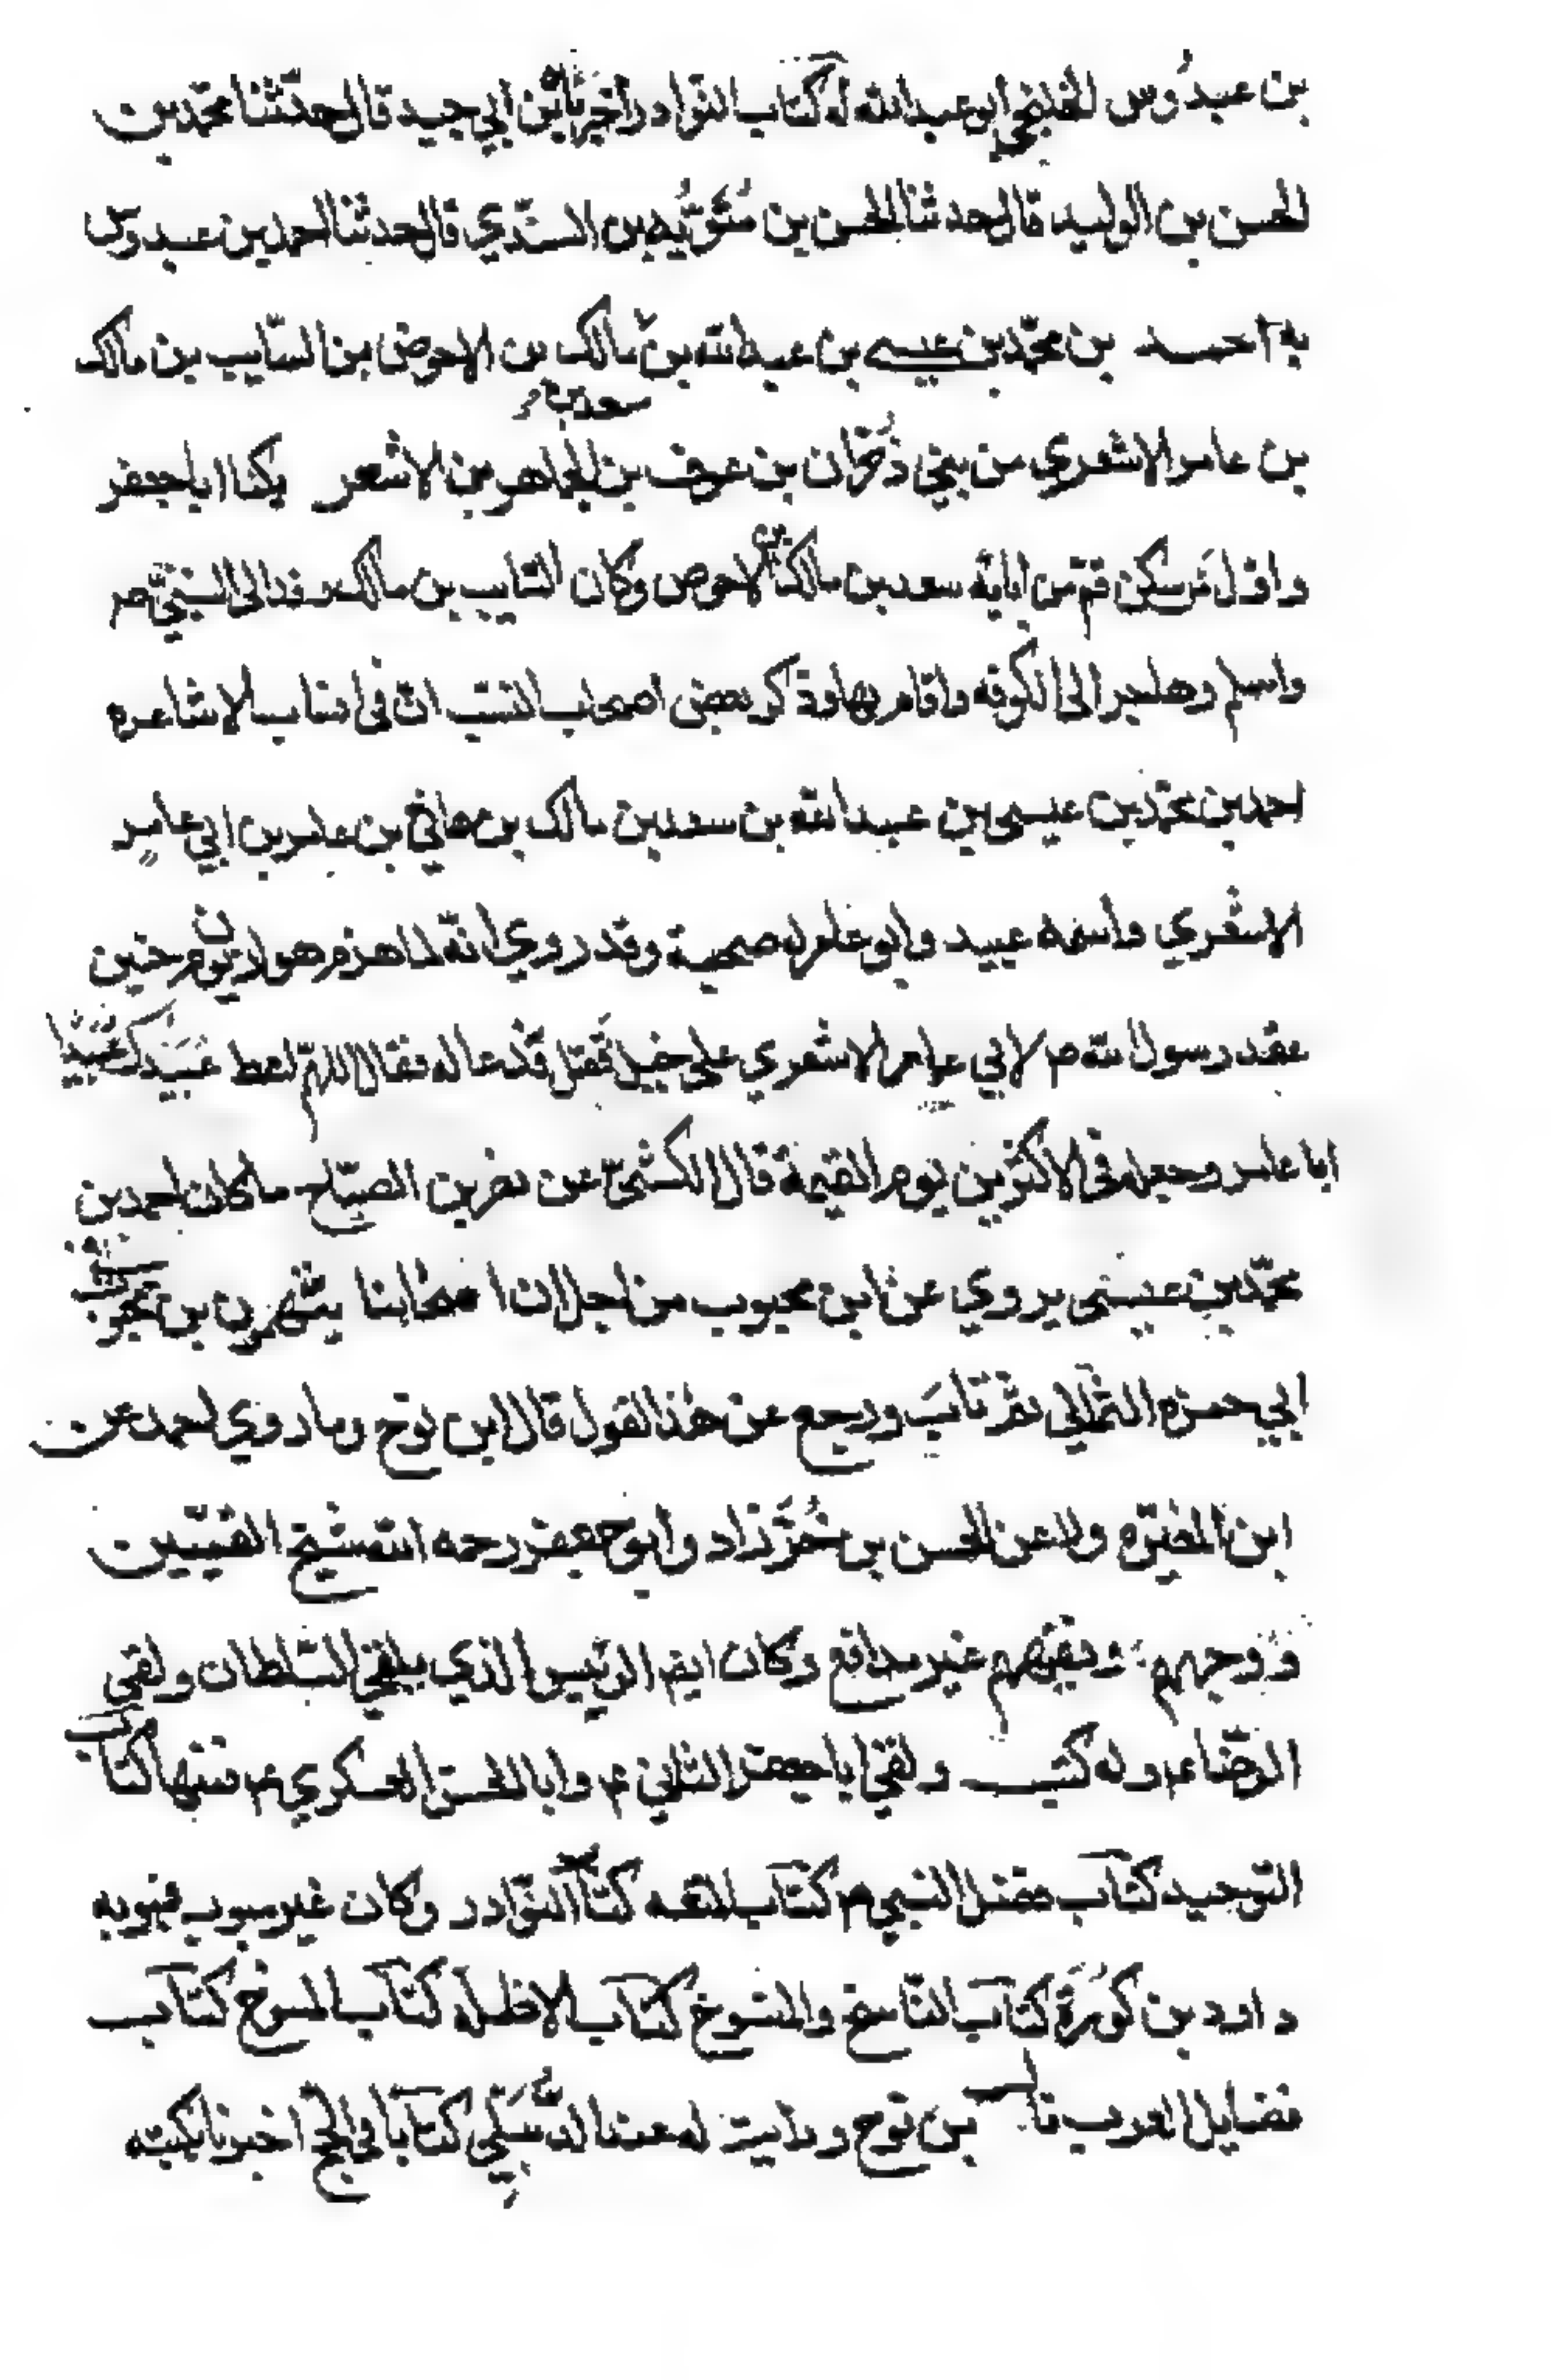 بن عبدُوس الخلنجي ابو عبدالله له كتاب النوادر اخبرنا ابن ابي جيد قال حدثنا محمد بن
الحسن بن الوليد قال حدثنا الحسن بن مَتُّوَيْه بن السندي قال حدثنا احمد بن عبدوس
به احمد بن محمد بن عيسى بن عبدالله بن سعد بن مالك بن الاحوص بن السّايب بن مالك
بن عامر الاشعري من بني ذُخْرَان بن عوف بن الجماهر بن الاشعر يكنا ابا جعفر
واوّل مَن سكن قم من ابائه سعد بن مالك بن الاحوص وكان السّايب بن مالك وفد الى النبيّ ص
واسلم وهاجر الى الكوفه واقام بها وذكر بعض اصحاب النسب ان في انساب الاشاعره
احمد بن محمّد بن عيسى بن عبدالله بن سعد بن مالك بن هاني بن عامر بن ابي عامر
الاشعري واسمه عبيد وابو عامر له صحبة وقد روي انّه لما هزم هوازن يوم حنين
عقد رسول الله ص لابي عامر الاشعري على خيل فقتل فدعا له فقال اللهمّ اعط عُبَيْدك عُبَيْدًا
ابا عامر وجعله في الاكثرين يوم القيمة قال الكشيّ عن نصر بن الصبّاح ما كان احمد بن
محمّد بن عيسى يروي عن ابن محبوب من اجل ان اصحابنا يتّهمون بن محبوب في
ابي حمزه الثمالي ثمّ تابَ ورجع عن هذا القول قال ابن نوح وما روي احمد عن
ابن المغيّره ولا عن الحسن بن خُرَّزاد وابو جعفر رحمه الله شيخ القميّين
ووجههم وفقيههم غير مدافع وكان ايضا الرئيس الذي يلقى السّلطان ولقي
الرّضا ع وله كتب ولقي ابا جعفر الثاني ع وابا الحسن العسكري ع فمنها كتاب
التوحيد كتاب فضل النبي ص كتاب المتعه كتاب النّوادر وكان غير مبوب فبوبه
داود بن كُورَة كتاب النّاسخ والمنسوخ كتاب الاظلّه كتاب المسوخ كتاب
فضايل العرب قال بن نوح ورايت له عند الدَّبيلي كتابا في الحجّ اخبرنا بكتبه